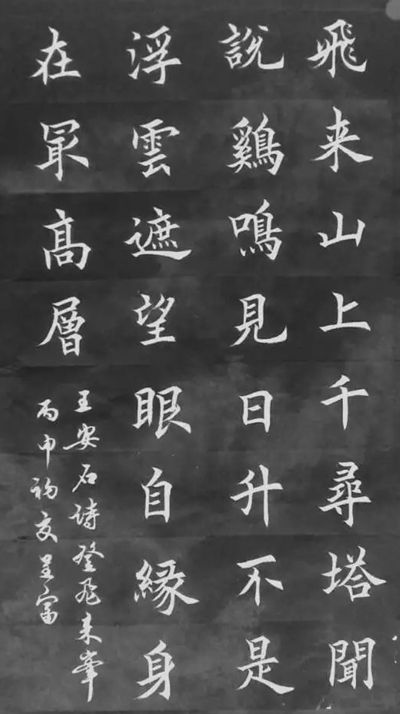 飛来山上千尋塔聞
說鷄鳴見日升不是
浮雲遮望眼自緣身
在最髙層
王安石詩登飛来峯
丙申初夏呈富